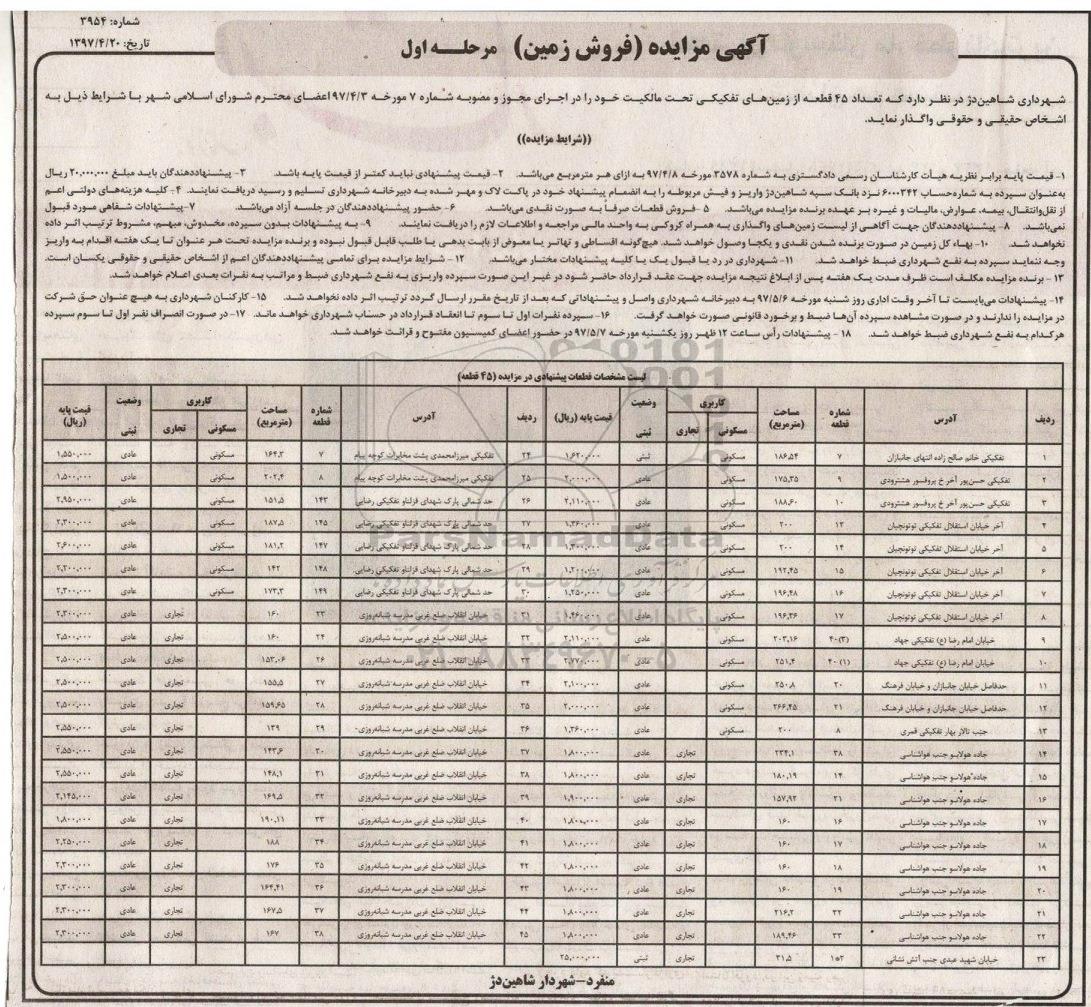 شماره: ۳۹۵۴
تاریخ: ۱۳۹۷/۴/۲۰
آگهی مزایده (فروش زمین) مرحله اول
شهرداری شاهین‌دژ در نظر دارد که تعداد ۴۵ قطعه از زمین‌های تفکیکی تحت مالکیت خود را در اجرای مجوز و مصوبه شماره ۷ مورخه ۹۷/۴/۳ اعضای محترم شورای اسلامی شهر با شرایط ذیل به
اشخاص حقیقی و حقوقی واگذار نماید.
((شرایط مزایده))
۱- قیمت پایه برابر نظریه هیأت کارشناسان رسمی دادگستری به شماره ۳۵۷۸ مورخه ۹۷/۴/۸ به ازای هر مترمربع می‌باشد. ۲- قیمت پیشنهادی نباید کمتر از قیمت پایه باشد. ۳- پیشنهاددهندگان باید مبلغ ۲۰,۰۰۰,۰۰۰ ریال
به‌عنوان سپرده به شماره‌حساب ۶۰۰۰۳۴۲ نزد بانک سپه شاهین‌دژ واریز و فیش مربوطه را به انضمام پیشنهاد خود در پاکت لاک و مهر شده به دبیرخانه شهرداری تسلیم و رسید دریافت نمایند. ۴- کلیه هزینه‌های دولتی اعم
از نقل‌وانتقال، بیمه، عوارض، مالیات و غیره بر عهده برنده مزایده می‌باشد. ۵- فروش قطعات صرفاً به صورت نقدی می‌باشد. ۶- حضور پیشنهاددهندگان در جلسه آزاد می‌باشد. ۷- پیشنهادات شفاهی مورد قبول
نمی‌باشد. ۸- پیشنهاددهندگان جهت آگاهی از لیست زمین‌های واگذاری به همراه کروکی به واحد مالی مراجعه و اطلاعات لازم را دریافت نمایند. ۹- به پیشنهادات بدون سپرده، مخدوش، مبهم، مشروط ترتیب اثر داده
نخواهد شد. ۱۰- بهاء کل زمین در صورت برنده شدن نقدی و یکجا وصول خواهد شد. هیچ‌گونه اقساطی و تهاتر یا معوض از بابت بدهی یا طلب قابل قبول نبوده و برنده مزایده تحت هر عنوان تا یک هفته اقدام به واریز
وجه ننماید سپرده به نفع شهرداری ضبط خواهد شد. ۱۱- شهرداری در رد یا قبول یک یا کلیه پیشنهادات مختار می‌باشد. ۱۲- شرایط مزایده برای تمامی پیشنهاددهندگان اعم از اشخاص حقیقی و حقوقی یکسان است.
۱۳- برنده مزایده مکلف است ظرف مدت یک هفته پس از ابلاغ نتیجه مزایده جهت عقد قرارداد حاضر شود در غیر این صورت سپرده واریزی به نفع شهرداری ضبط و مراتب به نفرات بعدی اعلام خواهد شد.
۱۴- پیشنهادات می‌بایست تا آخر وقت اداری روز شنبه مورخه ۹۷/۵/۶ به دبیرخانه شهرداری واصل و پیشنهاداتی که بعد از تاریخ مقرر ارسال گردد ترتیب اثر داده نخواهد شد. ۱۵- کارکنان شهرداری به هیچ عنوان حق شرکت
در مزایده را ندارند و در صورت مشاهده سپرده آن‌ها ضبط و برخورد قانونی صورت خواهد گرفت. ۱۶- سپرده نفرات اول تا سوم تا انعقاد قرارداد در حساب شهرداری خواهد ماند. ۱۷- در صورت انصراف نفر اول تا سوم سپرده
هرکدام به نفع شهرداری ضبط خواهد شد. ۱۸- پیشنهادات رأس ساعت ۱۲ ظهر روز یکشنبه مورخه ۹۷/۵/۷ در حضور اعضای کمیسیون مفتوح و قرائت خواهد شد.
لیست مشخصات قطعات پیشنهادی در مزایده (۴۵ قطعه)
ردیف آدرس شماره قطعه مساحت (مترمربع) کاربری مسکونی تجاری وضعیت ثبتی قیمت پایه (ریال) ردیف آدرس شماره قطعه مساحت (مترمربع) کاربری مسکونی تجاری وضعیت ثبتی قیمت پایه (ریال)
۱ تفکیکی خانم صالح زاده انتهای جانبازان ۷ ۱۸۶,۵۴ مسکونی ثبتی ۱,۶۲۰,۰۰۰ ۲۴ تفکیکی میرزامحمدی پشت مخابرات کوچه پیام ۷ ۱۶۴,۲ مسکونی عادی ۱,۵۵۰,۰۰۰
۲ تفکیکی حسن‌پور آخر خ پروفسور هشترودی ۹ ۱۷۵,۳۵ مسکونی عادی ۲,۰۰۰,۰۰۰ ۲۵ تفکیکی میرزامحمدی پشت مخابرات کوچه پیام ۸ ۲۰۲,۴ مسکونی عادی ۱,۵۰۰,۰۰۰
۳ تفکیکی حسن‌پور آخر خ پروفسور هشترودی ۱۰ ۱۸۸,۶۰ مسکونی عادی ۲,۱۱۰,۰۰۰ ۲۶ حد شمالی پارک شهدای قزلناو تفکیکی رضایی ۱۴۳ ۱۵۱,۵ مسکونی عادی ۲,۹۵۰,۰۰۰
۴ آخر خیابان استقلال تفکیکی توتونچیان ۱۲ ۲۰۰ مسکونی عادی ۱,۲۶۰,۰۰۰ ۲۷ حد شمالی پارک شهدای قزلناو تفکیکی رضایی ۱۴۵ ۱۸۷,۵ مسکونی عادی ۲,۳۰۰,۰۰۰
۵ آخر خیابان استقلال تفکیکی توتونچیان ۱۴ ۲۰۰ مسکونی عادی ۱,۳۰۰,۰۰۰ ۲۸ حد شمالی پارک شهدای قزلناو تفکیکی رضایی ۱۴۷ ۱۸۱,۲ مسکونی عادی ۲,۶۰۰,۰۰۰
۶ آخر خیابان استقلال تفکیکی توتونچیان ۱۵ ۱۹۲,۴۵ مسکونی عادی ۱,۲۰۰,۰۰۰ ۲۹ حد شمالی پارک شهدای قزلناو تفکیکی رضایی ۱۴۸ ۱۴۲ مسکونی عادی ۲,۲۰۰,۰۰۰
۷ آخر خیابان استقلال تفکیکی توتونچیان ۱۶ ۱۹۶,۴۸ مسکونی عادی ۱,۲۵۰,۰۰۰ ۳۰ حد شمالی پارک شهدای قزلناو تفکیکی رضایی ۱۴۹ ۱۷۳,۳ مسکونی عادی ۲,۳۰۰,۰۰۰
۸ آخر خیابان استقلال تفکیکی توتونچیان ۱۷ ۱۹۶,۳۶ مسکونی عادی ۱,۴۶۰,۰۰۰ ۳۱ خیابان انقلاب ضلع غربی مدرسه شبانه‌روزی ۲۳ ۱۶۰ تجاری عادی ۲,۳۰۰,۰۰۰
۹ خیابان امام رضا (ع) تفکیکی جهاد ۴۰(۳) ۲۰۳,۱۶ مسکونی عادی ۲,۱۱۰,۰۰۰ ۳۲ خیابان انقلاب ضلع غربی مدرسه شبانه‌روزی ۲۴ ۱۶۰ تجاری عادی ۲,۵۰۰,۰۰۰
۱۰ خیابان امام رضا (ع) تفکیکی جهاد ۴۰(۱) ۲۵۱,۴ مسکونی عادی ۲,۷۷۰,۰۰۰ ۳۳ خیابان انقلاب ضلع غربی مدرسه شبانه‌روزی ۲۶ ۱۵۳,۰۶ تجاری عادی ۲,۵۰۰,۰۰۰
۱۱ حدفاصل خیابان جانبازان و خیابان فرهنگ ۲۰ ۲۵۰,۸ مسکونی عادی ۲,۱۰۰,۰۰۰ ۳۴ خیابان انقلاب ضلع غربی مدرسه شبانه‌روزی ۲۷ ۱۵۵,۵ تجاری عادی ۲,۵۰۰,۰۰۰
۱۲ حدفاصل خیابان جانبازان و خیابان فرهنگ ۲۱ ۲۶۶,۴۵ مسکونی عادی ۲,۰۰۰,۰۰۰ ۳۵ خیابان انقلاب ضلع غربی مدرسه شبانه‌روزی ۲۸ ۱۵۹,۶۵ تجاری عادی ۲,۵۰۰,۰۰۰
۱۳ جنب تالار بهار تفکیکی قمری ۸ ۲۰۰ مسکونی عادی ۱,۳۶۰,۰۰۰ ۳۶ خیابان انقلاب ضلع غربی مدرسه شبانه‌روزی ۲۹ ۱۳۹ تجاری عادی ۲,۵۵۰,۰۰۰
۱۴ جاده هولاسو جنب هواشناسی ۳۸ ۲۳۴,۱ تجاری عادی ۱,۸۰۰,۰۰۰ ۳۷ خیابان انقلاب ضلع غربی مدرسه شبانه‌روزی ۳۰ ۱۴۳,۶ تجاری عادی ۲,۵۵۰,۰۰۰
۱۵ جاده هولاسو جنب هواشناسی ۱۴ ۱۸۰,۱۹ تجاری عادی ۱,۸۰۰,۰۰۰ ۳۸ خیابان انقلاب ضلع غربی مدرسه شبانه‌روزی ۳۱ ۱۴۸,۱ تجاری عادی ۲,۵۵۰,۰۰۰
۱۶ جاده هولاسو جنب هواشناسی ۲۱ ۱۵۷,۹۲ تجاری عادی ۱,۹۰۰,۰۰۰ ۳۹ خیابان انقلاب ضلع غربی مدرسه شبانه‌روزی ۳۲ ۱۶۹,۵ تجاری عادی ۲,۱۴۵,۰۰۰
۱۷ جاده هولاسو جنب هواشناسی ۱۶ ۱۶۰ تجاری عادی ۱,۸۰۰,۰۰۰ ۴۰ خیابان انقلاب ضلع غربی مدرسه شبانه‌روزی ۳۳ ۱۹۰,۱۱ تجاری عادی ۱,۸۰۰,۰۰۰
۱۸ جاده هولاسو جنب هواشناسی ۱۷ ۱۶۰ تجاری عادی ۱,۸۰۰,۰۰۰ ۴۱ خیابان انقلاب ضلع غربی مدرسه شبانه‌روزی ۳۴ ۱۸۸ تجاری عادی ۲,۲۵۰,۰۰۰
۱۹ جاده هولاسو جنب هواشناسی ۱۸ ۱۶۰ تجاری عادی ۱,۸۰۰,۰۰۰ ۴۲ خیابان انقلاب ضلع غربی مدرسه شبانه‌روزی ۳۵ ۱۷۶ تجاری عادی ۲,۳۰۰,۰۰۰
۲۰ جاده هولاسو جنب هواشناسی ۱۹ ۱۶۰ تجاری عادی ۱,۸۰۰,۰۰۰ ۴۳ خیابان انقلاب ضلع غربی مدرسه شبانه‌روزی ۳۶ ۱۶۴,۴۱ تجاری عادی ۲,۳۰۰,۰۰۰
۲۱ جاده هولاسو جنب هواشناسی ۳۲ ۲۱۶,۲ تجاری عادی ۱,۸۰۰,۰۰۰ ۴۴ خیابان انقلاب ضلع غربی مدرسه شبانه‌روزی ۳۷ ۱۶۷,۵ تجاری عادی ۲,۳۰۰,۰۰۰
۲۲ جاده هولاسو جنب هواشناسی ۳۳ ۱۸۹,۴۶ تجاری عادی ۱,۸۰۰,۰۰۰ ۴۵ خیابان انقلاب ضلع غربی مدرسه شبانه‌روزی ۳۸ ۱۶۷ تجاری عادی ۲,۳۰۰,۰۰۰
۲۳ خیابان شهید عبدی جنب آتش نشانی ۱و۲ ۳۱,۵ تجاری ثبتی ۲۵,۰۰۰,۰۰۰
منفرد-شهردار شاهین‌دژ
ParsNamadData